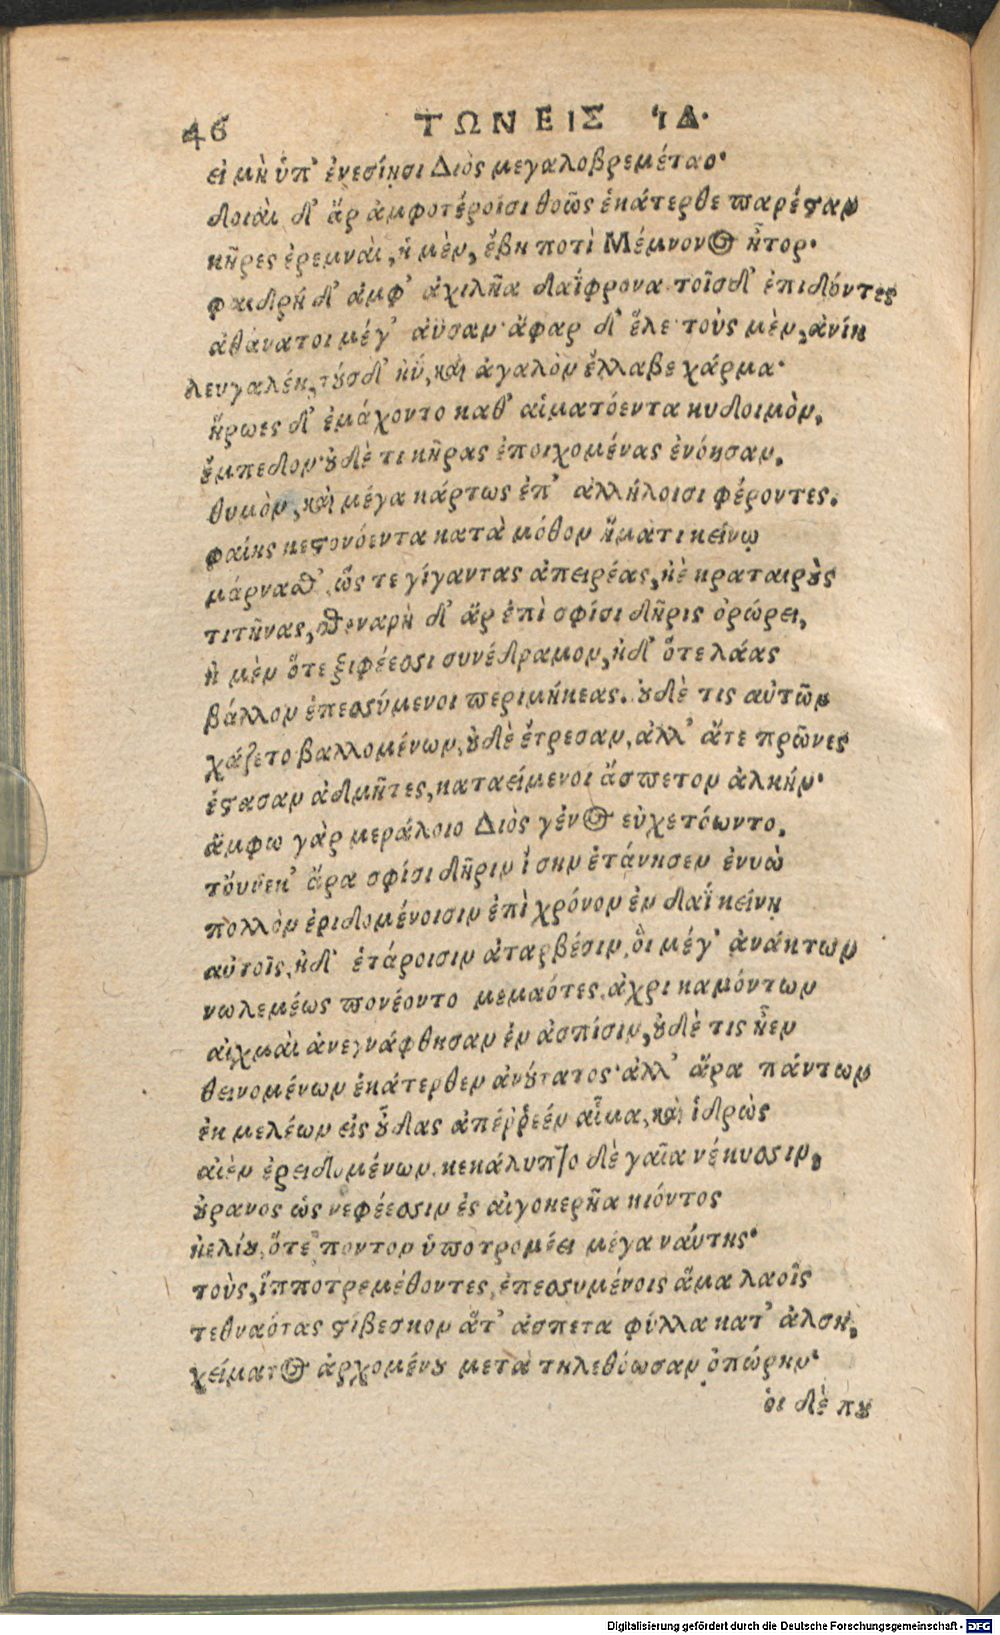 46 ΤΩΝ ΕΙΣ ἸΛ·
εἰ μὴ ὑπ' ἐνεσίησι Διὸς μεγαλοβρεμέταο·
δοιαὶ δ' ἄρ ἀμφοτέροισι θοῶς ἑκάτερθε παρέσταν
κῆρες ἐρεμναὶ, ἡ μὲν, ἔβη ποτὶ Μέμνονος ἦτορ·
φαιδρὴ δ' ἀμφ' ἀχιλῆα δαΐφρονα· τοῖσδ' ἐπιδόντες
ἀθάνατοι μέγ' ἀΰσαν· ἄφαρ δ' ἕλε τοὺς μὲν, ἀνίη
λευγαλέη, τούσδ' ἠΰ, καὶ ἀγαλὸν ἔλλαβε χάρμα·
ἥρωες δ' ἐμάχοντο καθ' αἱματόεντα κυδοιμὸν,
ἔμπεδον· οὐδὲ τι κῆρας ἐποιχομένας ἐνόησαν,
θυμὸν, καὶ μέγα κάρτως ἐπ' ἀλλήλοισι φέροντες.
φαίης κεστονόεντα κατὰ μόθον ἤματι κείνῳ
μάρνασθ' ὥς τε γίγαντας ἀπειρέας, ἠὲ κραταιροὺς
τιτῆνας, σθεναρὴ δ' ἄρ ἐπὶ σφίσι δῆρις ὀρώρει,
ἠ μὲν ὅτε ξιφέεσσι συνέδραμον, ἠδ' ὅτε λάας
βάλλον ἐπεσσύμενοι περιμήκεας. οὐδὲ τις αὐτῶν
χάζετο βαλλομένων, οὐδὲ ἔτρεσαν, ἀλλ' ἅτε πρῶνες
ἕστασαν ἀδμῆτες, καταείμενοι ἄσπετον ἀλκήν·
ἄμφω γὰρ μεράλοιο Διὸς γένος εὐχετόωντο,
τοὔνεκ' ἄρα σφίσι δῆριν ἴσην ἐτάνησεν ἐνυὼ
πολλὸν ἐριδομένοισιν ἐπὶ χρόνον ἐν δαῒ κείνῃ
αὐτοῖς, ἠδ' ἑτάροισιν ἀταρβέσιν, οἳ μέγ' ἀνάκτων
νωλεμέως πονέοντο μεμαότες, ἄχρι καμόντων
αἰχμαὶ ἀνεγνάφθησαν ἐν ἀσπίσιν, οὐδὲ τις ἦεν
θεινομένων ἑκάτερθεν ἀνούτατος· ἀλλ' ἄρα πάντων
ἐκ μελέων εἰς οὖδας ἀπέῤῥεεν αἷμα, καὶ ἱδρὼς
αἰὲν ἐρειδομένων, κεκάλυπτο δὲ γαῖα νέκυσσιν,
οὐρανος ὡς νεφέεσσιν ἐς αἰγοκερῆα κιόντος
ἠελίου, ὅτε ποντον ὑποτρομέει μέγα ναύτης·
τοὺς, ἵπποτρεμέθοντες, ἐπεσσυμένοις ἅμα λαοῖς
τεθναότας στίβεσκον ἅτ' ἀσπετα φύλλα κατ' ἀλση,
χείματος ἀρχομένου μετὰ τηλεθόωσαν ὀπώρην·
οἱ δὲ που
Digitalisierung gefördert durch die Deutsche Forschungsgemeinschaft - DFG